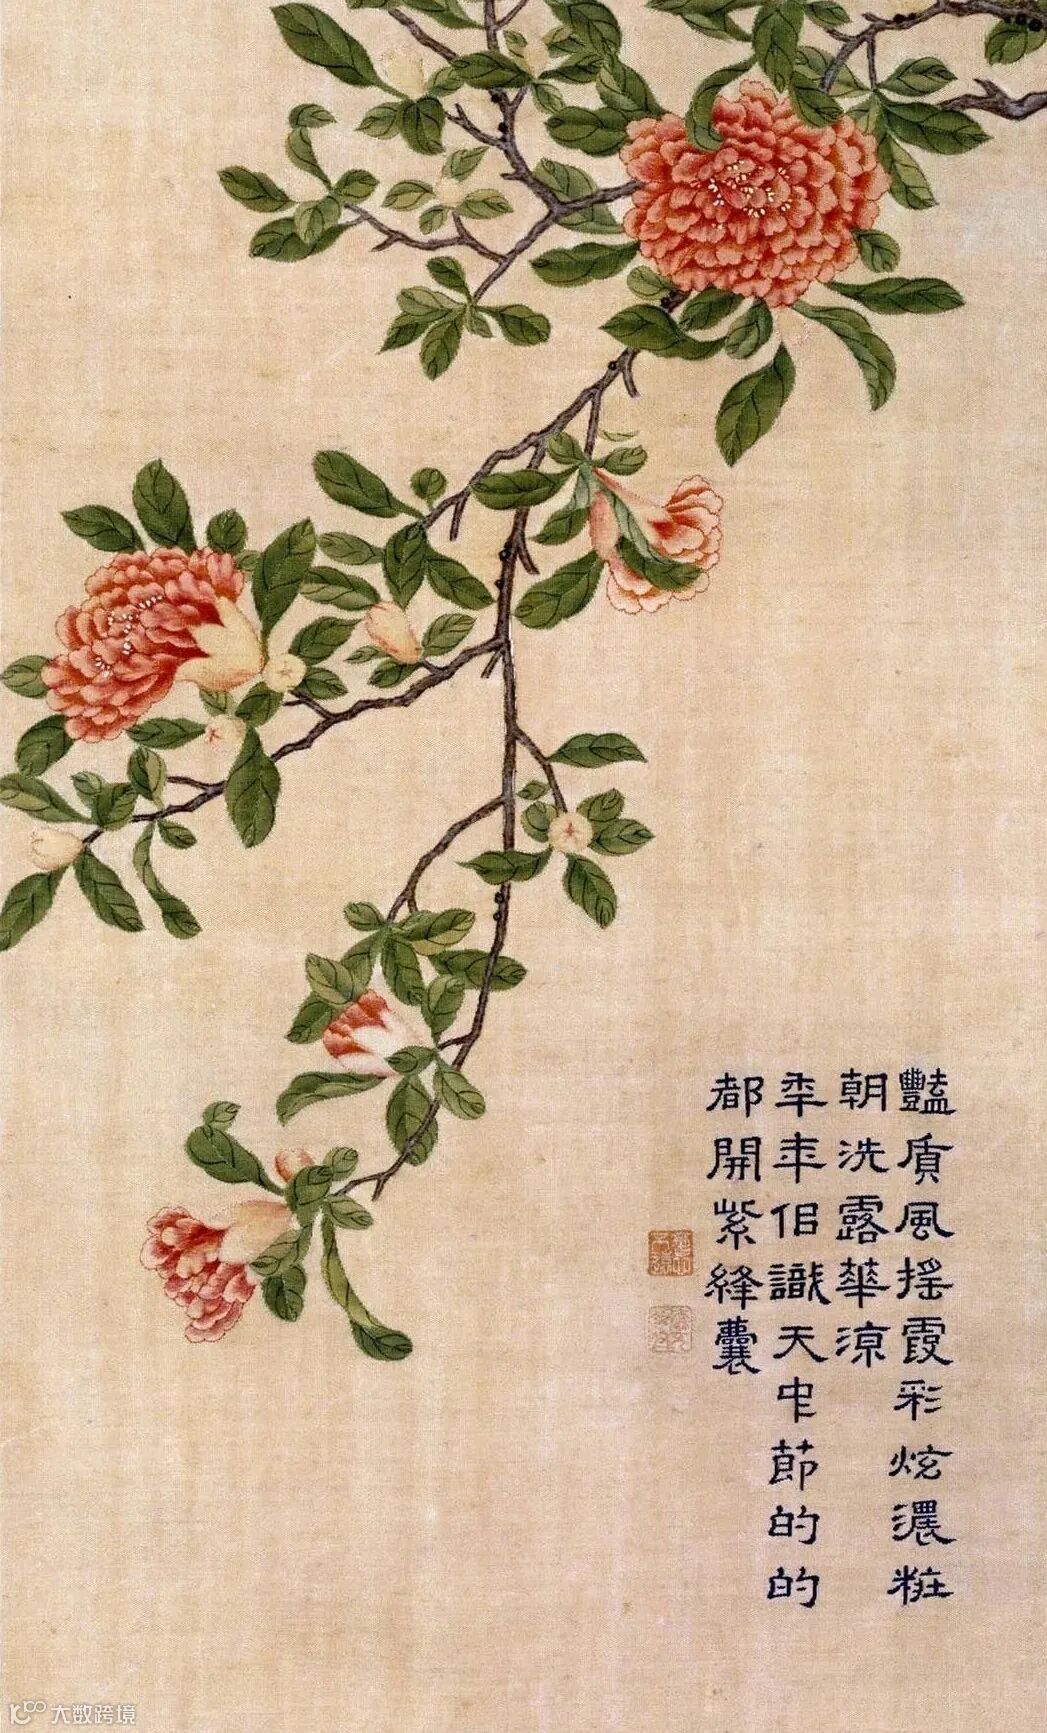 豔質風搖霞彩炫濃粧
朝洗露華涼
年年佀識天中節的的
都開紫絳囊
大数跨境